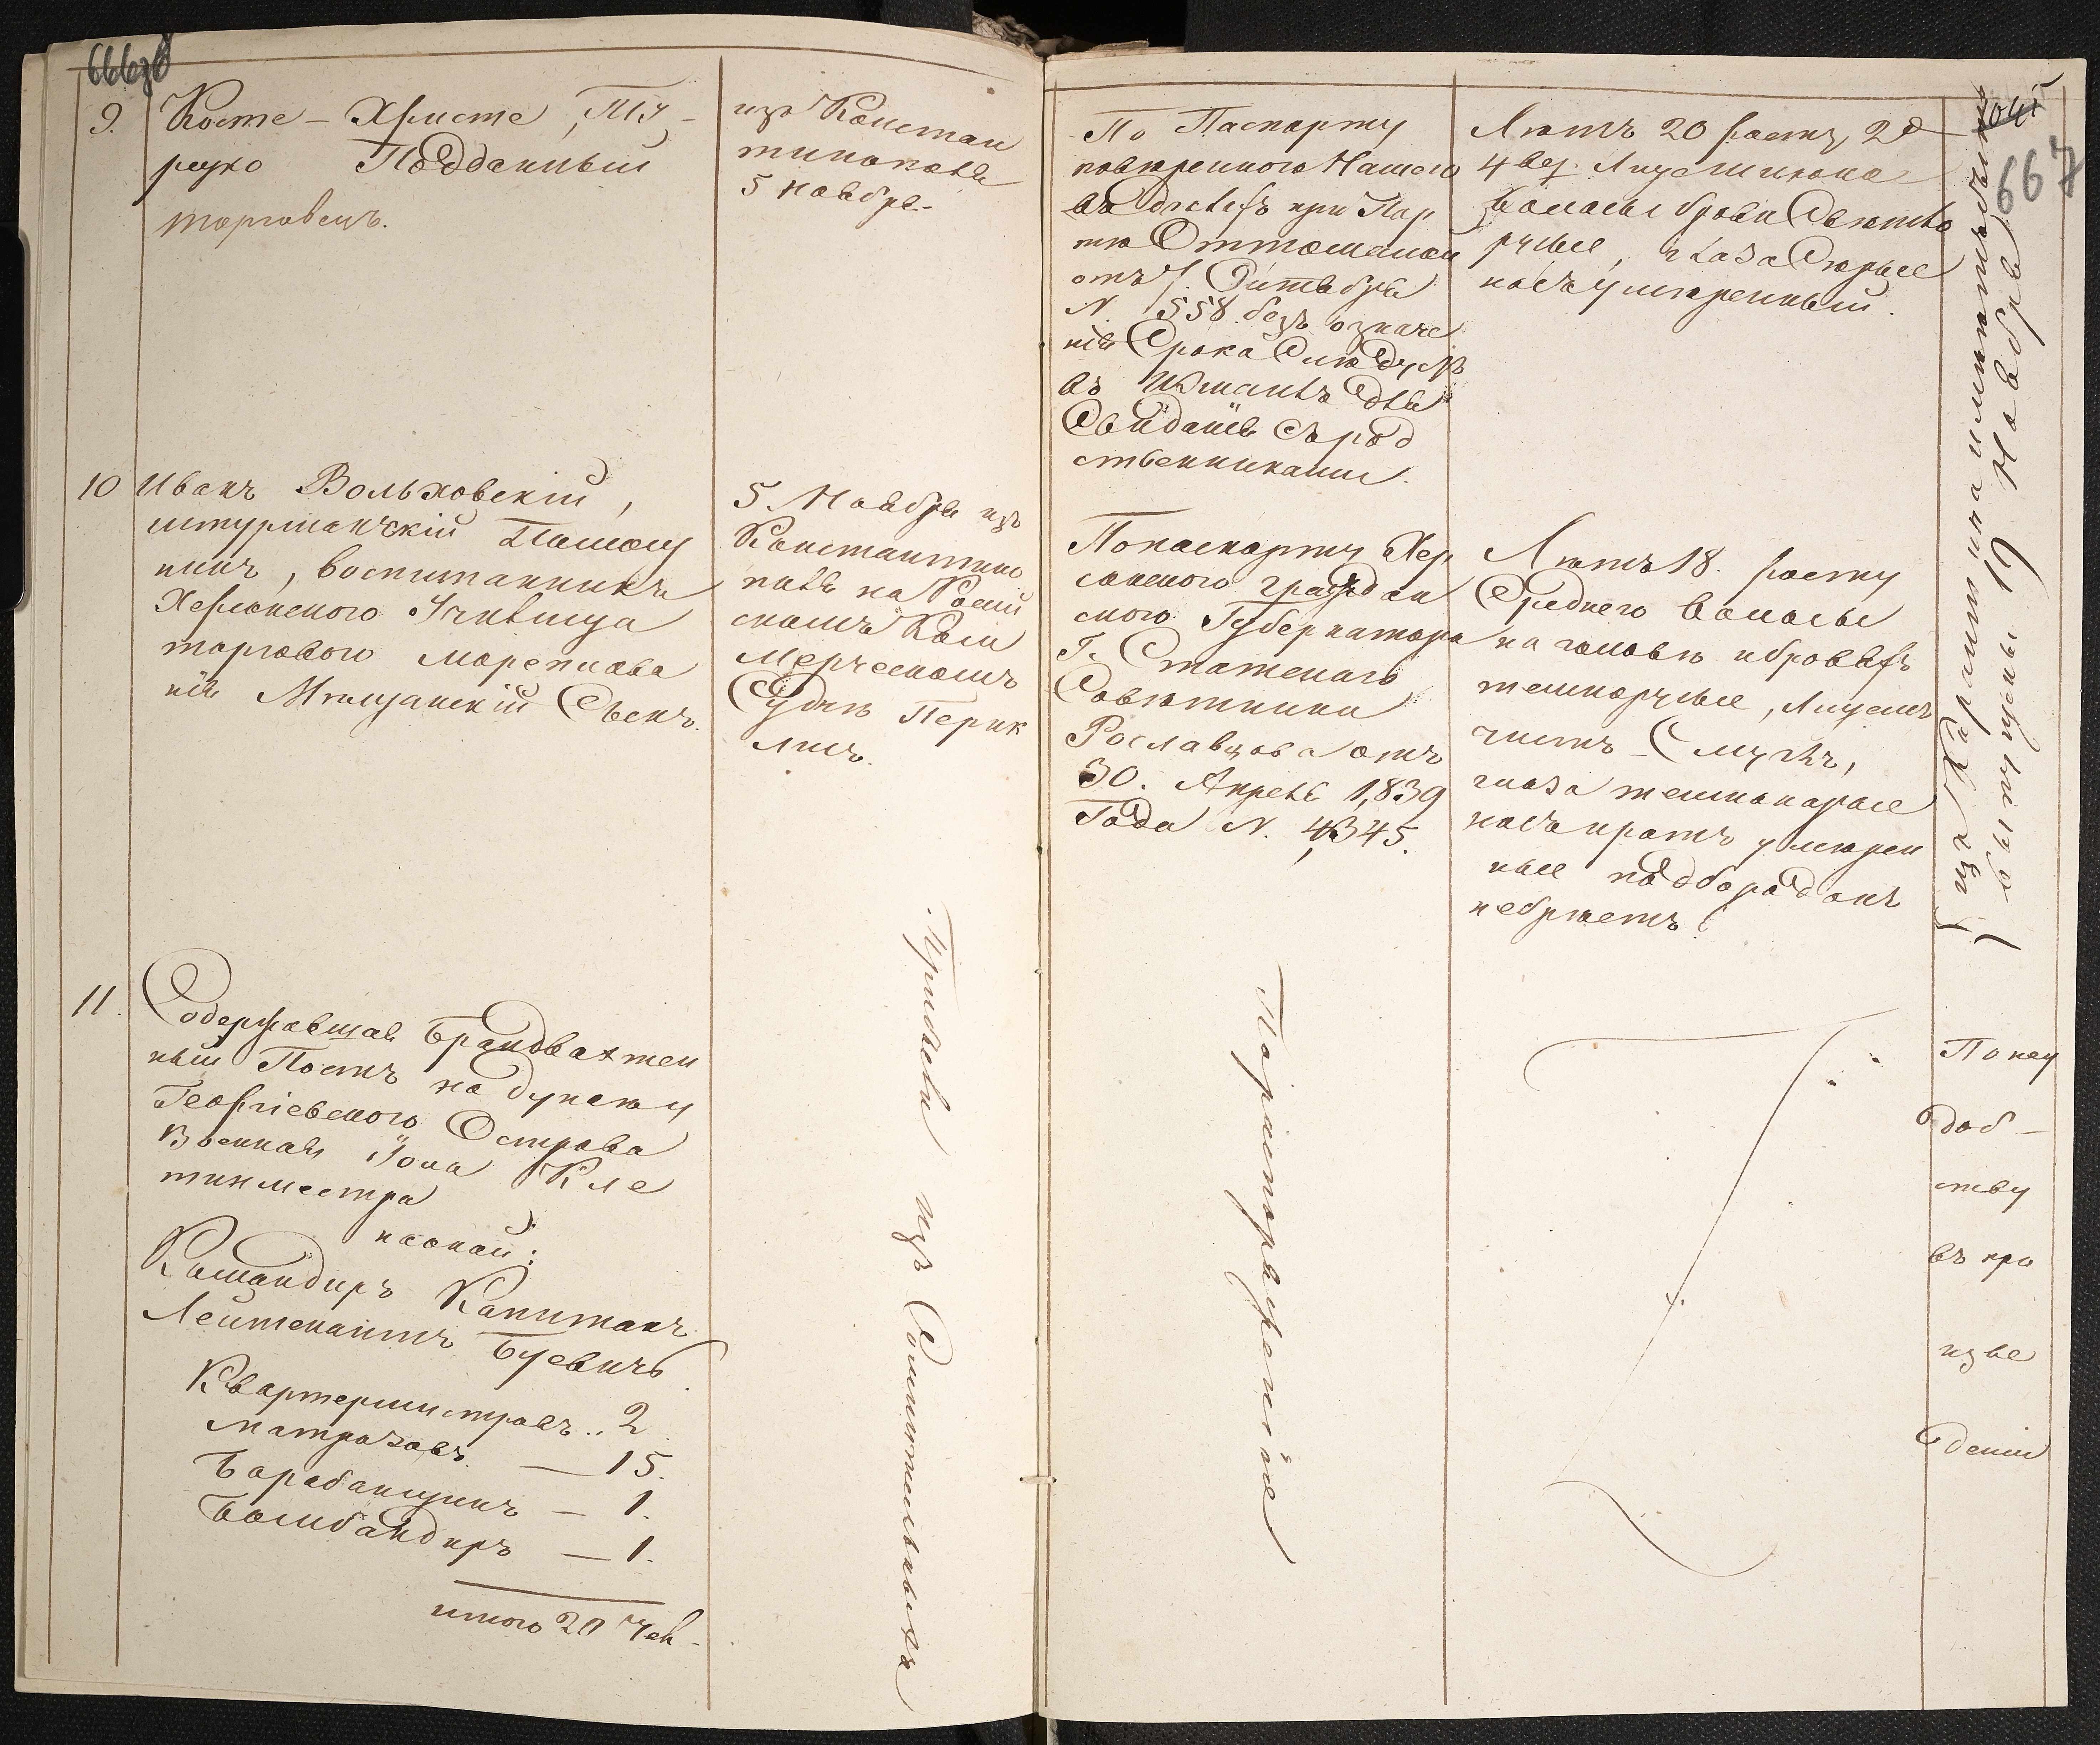 666об
9.
Косте - Христе, Ту-
рецко Подданный
торговецъ.
изъ Констан
тинополя
5 Ноября.
По Паспорту
повѣренного Нашего
въ дѣлахъ при Пор
тѣ Оттоманской
отъ 7. Октября
N. 558. безъ означе
нія Срока Слѣдуетъ
въ Измаилъ для
Свиданія съ род
ственниками.
Лѣтъ 20 ростъ 2 а
4 вер. Лицемъ
волосы брови Свѣтло
русые, глаза Сѣрые
носъ умѣренный.
10
Иванъ Вольховскій,
штурманскій Помощ
никъ, воспитанникъ
Херсонского Училища
торгового мореплава
нія Мѣщанскій Сынъ.
5. Ноября изъ
Константино
поля на Россій
скомъ Ком
мерческомъ
Суднѣ Перик
лисъ.
По паспорту Хер
сонского граждан
ского Губернатора
Г. Статского
Совѣтника
Рославцова отъ
30. Апреля 1,839
Года N. 4,345.
Лѣтъ 18. росту
Среднего волосы
на головѣ и бровяхъ
темнорусые, Лицемъ
чистъ Смуглъ,
глаза темнокарие
носъ и ротъ умѣрен
ные подбородокъ
небрѣетъ.
изъ Карантина
выпущены 19 Ноября
667
11.
Содержавшая Брандвахтен
ный Постъ на дунаѣ у
Георгіевского Острова
Военная Іола Кле
тинместра
на оной:
Командиръ Капитанъ
Лейтенантъ Буевичъ.
Квартермистровъ .. 2
Матрозовъ — 15.
Барабанщикъ — 1.
Бомбандиръ — 1.
итого 20 Чел.
Прибыли изъ Сомнительныхъ
По распоряженію
По неу
доб-
ству
въ про
изве
деніи